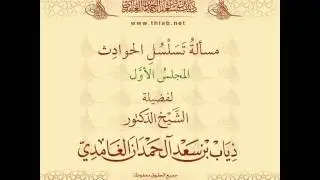 www.thiab.net
مسألةُ تَسَلْسُلِ الحَوادِث
المجلسُ الأوَّل
لفضيلة
الشَّيْخِ الدكتور
ذِيَاب بْن سَعْد آل حَمْدَان الغَامِدِيّ
جميع الحقوق محفوظة